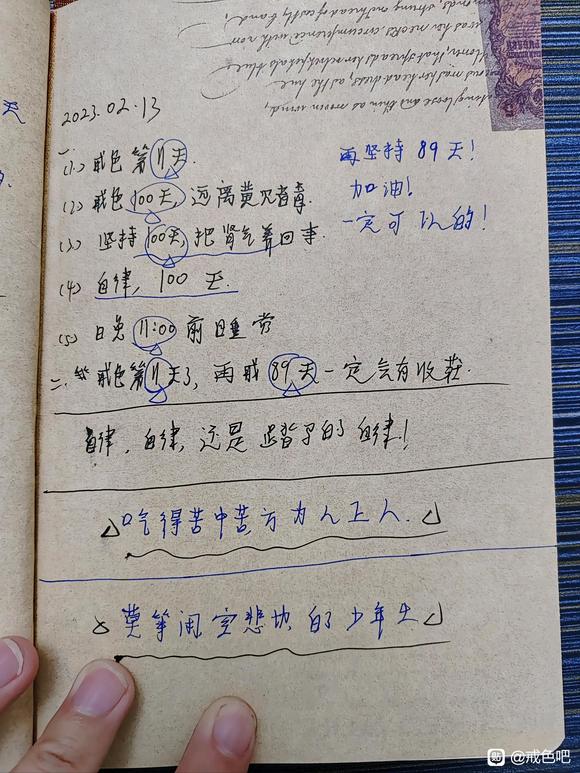 2023.02.13
一.
(1) 戒色第11天.
再坚持 89 天!
(2) 戒色100天, 远离黄赌毒.
加油!
(3) 坚持100天, 把肾气养回来.
一定可以的!
(4) 自律, 100 天.
(5) 晚 11:00 前睡觉
二. 戒色第11天了, 再戒89天一定会有收获.
自律, 自律, 还是的自律!
吃得苦中苦方为人上人.
莫等闲空悲切的少年
贴 @戒色吧